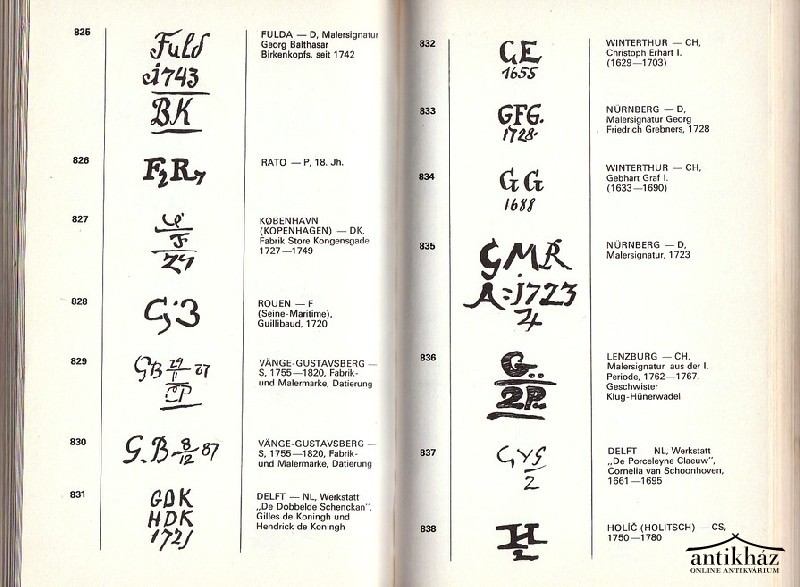 825
Fuld
1743
BK
FULDA — D, Malersignatur
Georg Balthasar
Birkenkopfs. seit 1742
826
F2R7
RATO — P, 18. Jh.
827
27
KØBENHAVN
(KOPENHAGEN) — DK.
Fabrik Store Kongensgade
1727—1749
828
G:3
ROUEN — F
(Seine-Maritime),
Guillibaud, 1720
829
GB 87
VÄNGE-GUSTAVSBERG —
S, 1755—1820, Fabrik-
und Malermarke, Datierung
830
G.B 8/12 87
VÄNGE-GUSTAVSBERG —
S, 1755—1820, Fabrik-
und Malermarke, Datierung
831
GDK
HDK
1721
DELFT — NL, Werkstatt
„De Dobbelde Schenckan”,
Gilles de Koningh und
Hendrick de Koningh
832
GE
1655
WINTERTHUR — CH,
Christoph Erhart I.
(1629—1703)
833
GFG.
1728
NÜRNBERG — D,
Malersignatur Georg
Friedrich Grebners, 1728
834
GG
1688
WINTERTHUR — CH,
Gebhart Graf I.
(1633—1690)
835
GMR
A:1723
4
NÜRNBERG — D,
Malersignatur, 1723
836
G.
2P.
LENZBURG — CH.
Malersignatur aus der I.
Periode, 1762—1767.
Geschwister
Klug-Hünerwadel
837
GVS
2
DELFT — NL, Werkstatt
„De Porceleyne Claeuw”,
Cornelia van Schoonhoven,
1661—1695
838
H
2
HOLÍČ (HOLITSCH) — CS,
1750—1780
antikház
ONLINE ANTIKVÁRIUM